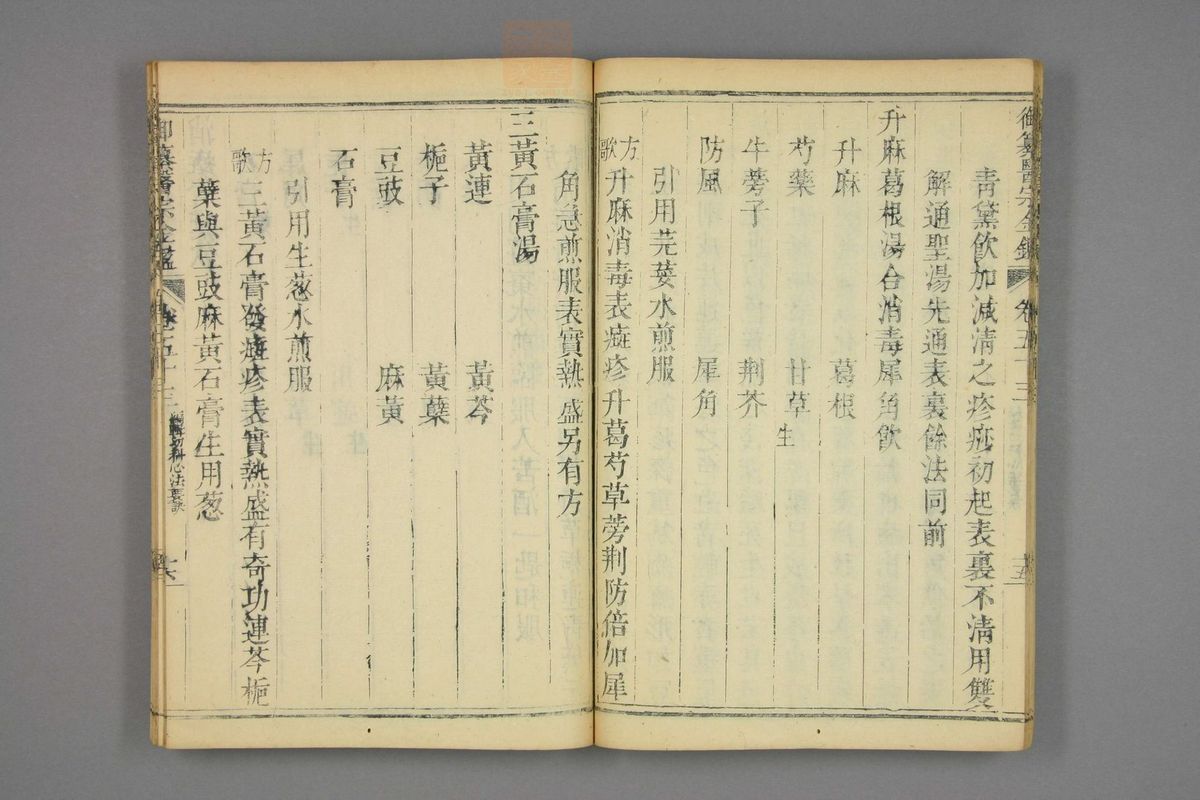 御纂醫宗金鑑 卷五十三 十五
青黛飲加減清之疹痲初起表裏不清用雙
解通聖湯先通表裏餘法同前
升麻葛根湯合消毒犀角飲
升麻 葛根
芍藥 甘草生
牛蒡子 荆芥
防風 犀角
引用芫荽水煎服
方歌 升麻消毒表㿀疹升葛芍草蒡荆防倍加犀
角急煎服表實熱盛另有方
三黃石膏湯
黃連 黃芩
梔子 黃蘗
豆豉 麻黃
石膏
引用生葱水煎服
方歌 三黃石膏發㿀疹表實熱盛有奇功連芩梔
蘗與豆豉麻黃石膏生用葱
御纂醫宗金鑑 卷五十三 編輯幼科心法要訣 十六